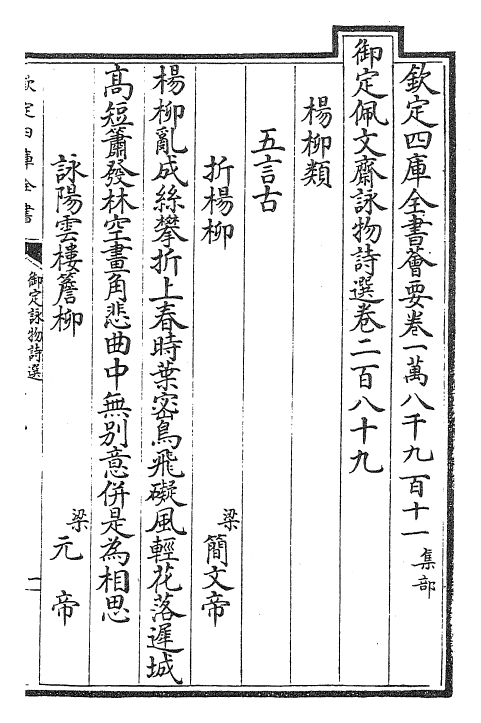 欽定四庫全書薈要卷一萬八千九百十一 集部
御定佩文齋詠物詩選卷二百八十九
楊柳類
五言古
折楊柳 梁 簡文帝
楊柳亂成絲攀折上春時葉密鳥飛礙風輕花落遲城
高短簫發林空畫角悲曲中無別意併是為相思
詠陽雲樓簷柳 梁 元帝
欽定四庫全書
御定詠物詩選